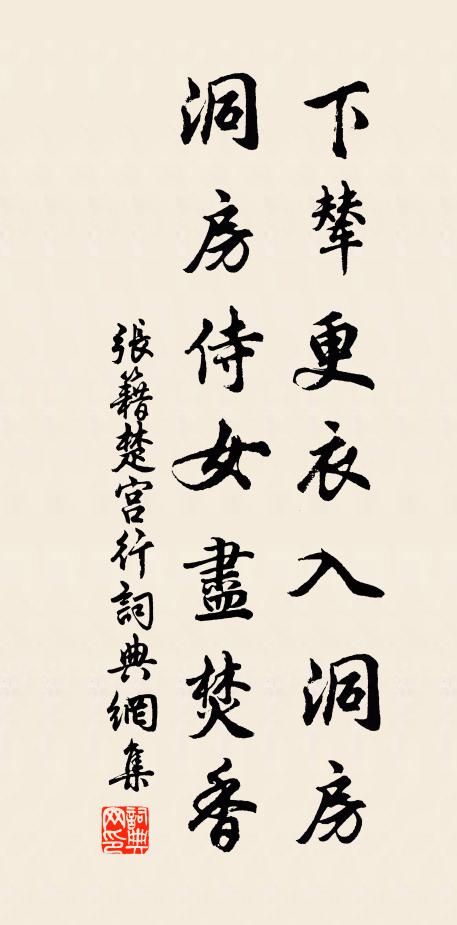 下輦更衣入洞房
洞房侍女盡焚香
張籍楚宮行詞典網集
詞典網印